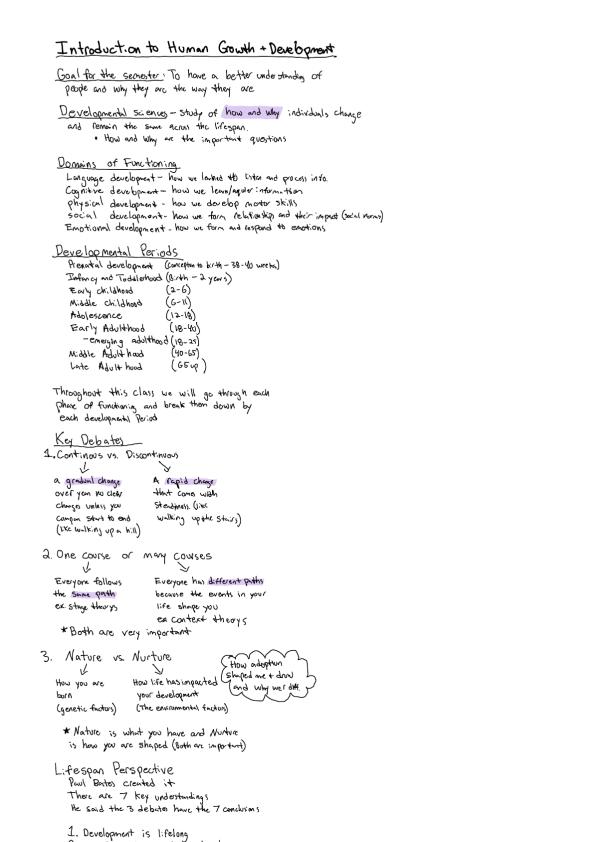 Introduction to Human Growth + Development
Goal for the semester: To have a better understanding of
people and why they are the way they are
Developmental sciences - study of how and why individuals change
and remain the same across the lifespan.
• How and why are the important questions
Domains of Functioning
Language development - how we learned to listen and process info.
Cognitive development - how we learn/aquire information
physical development - how we develop motor skills
social development - how we form relationship and their impact (social norms)
Emotional development - how we form and respond to emotions
Developmental Periods
Prenatal development (conception to birth - 38-40 weeks)
Infancy and Toddlerhood (Birth - 2 years)
Early childhood (2-6)
Middle childhood (6-11)
Adolescence (12-18)
Early Adulthood (18-40)
- emerging adulthood (18-25)
Middle Adulthood (40-65)
Late Adulthood (65 up)
Throughout this class we will go through each
phase of functioning and break them down by
each developmental Period
Key Debates
1. Continous vs. Discontinuous
a gradual change
over year no clear
change unless you
start to end
(like walking up a hill)
A rapid change
that come with
Steadiness (like
walking up the stairs)
2. One course or many courses
Everyone follows
the same path
ex stage theorys
Everyone has different paths
because the events in your
life shape you
ex context theorys
* Both are very important
3. Nature vs. Nurture
How you are
born
(genetic factors)
How life has impacted
your development
(The environmental factors)
How adoption
shaped me +
and why we r diff.
* Nature is what you have and Nurture
is how you are shaped (Both are important)
Lifespan Perspective
Paul Bates created it
There are 7 key understandings
He said the 3 debates have the 7 conclusions
1. Development is lifelong